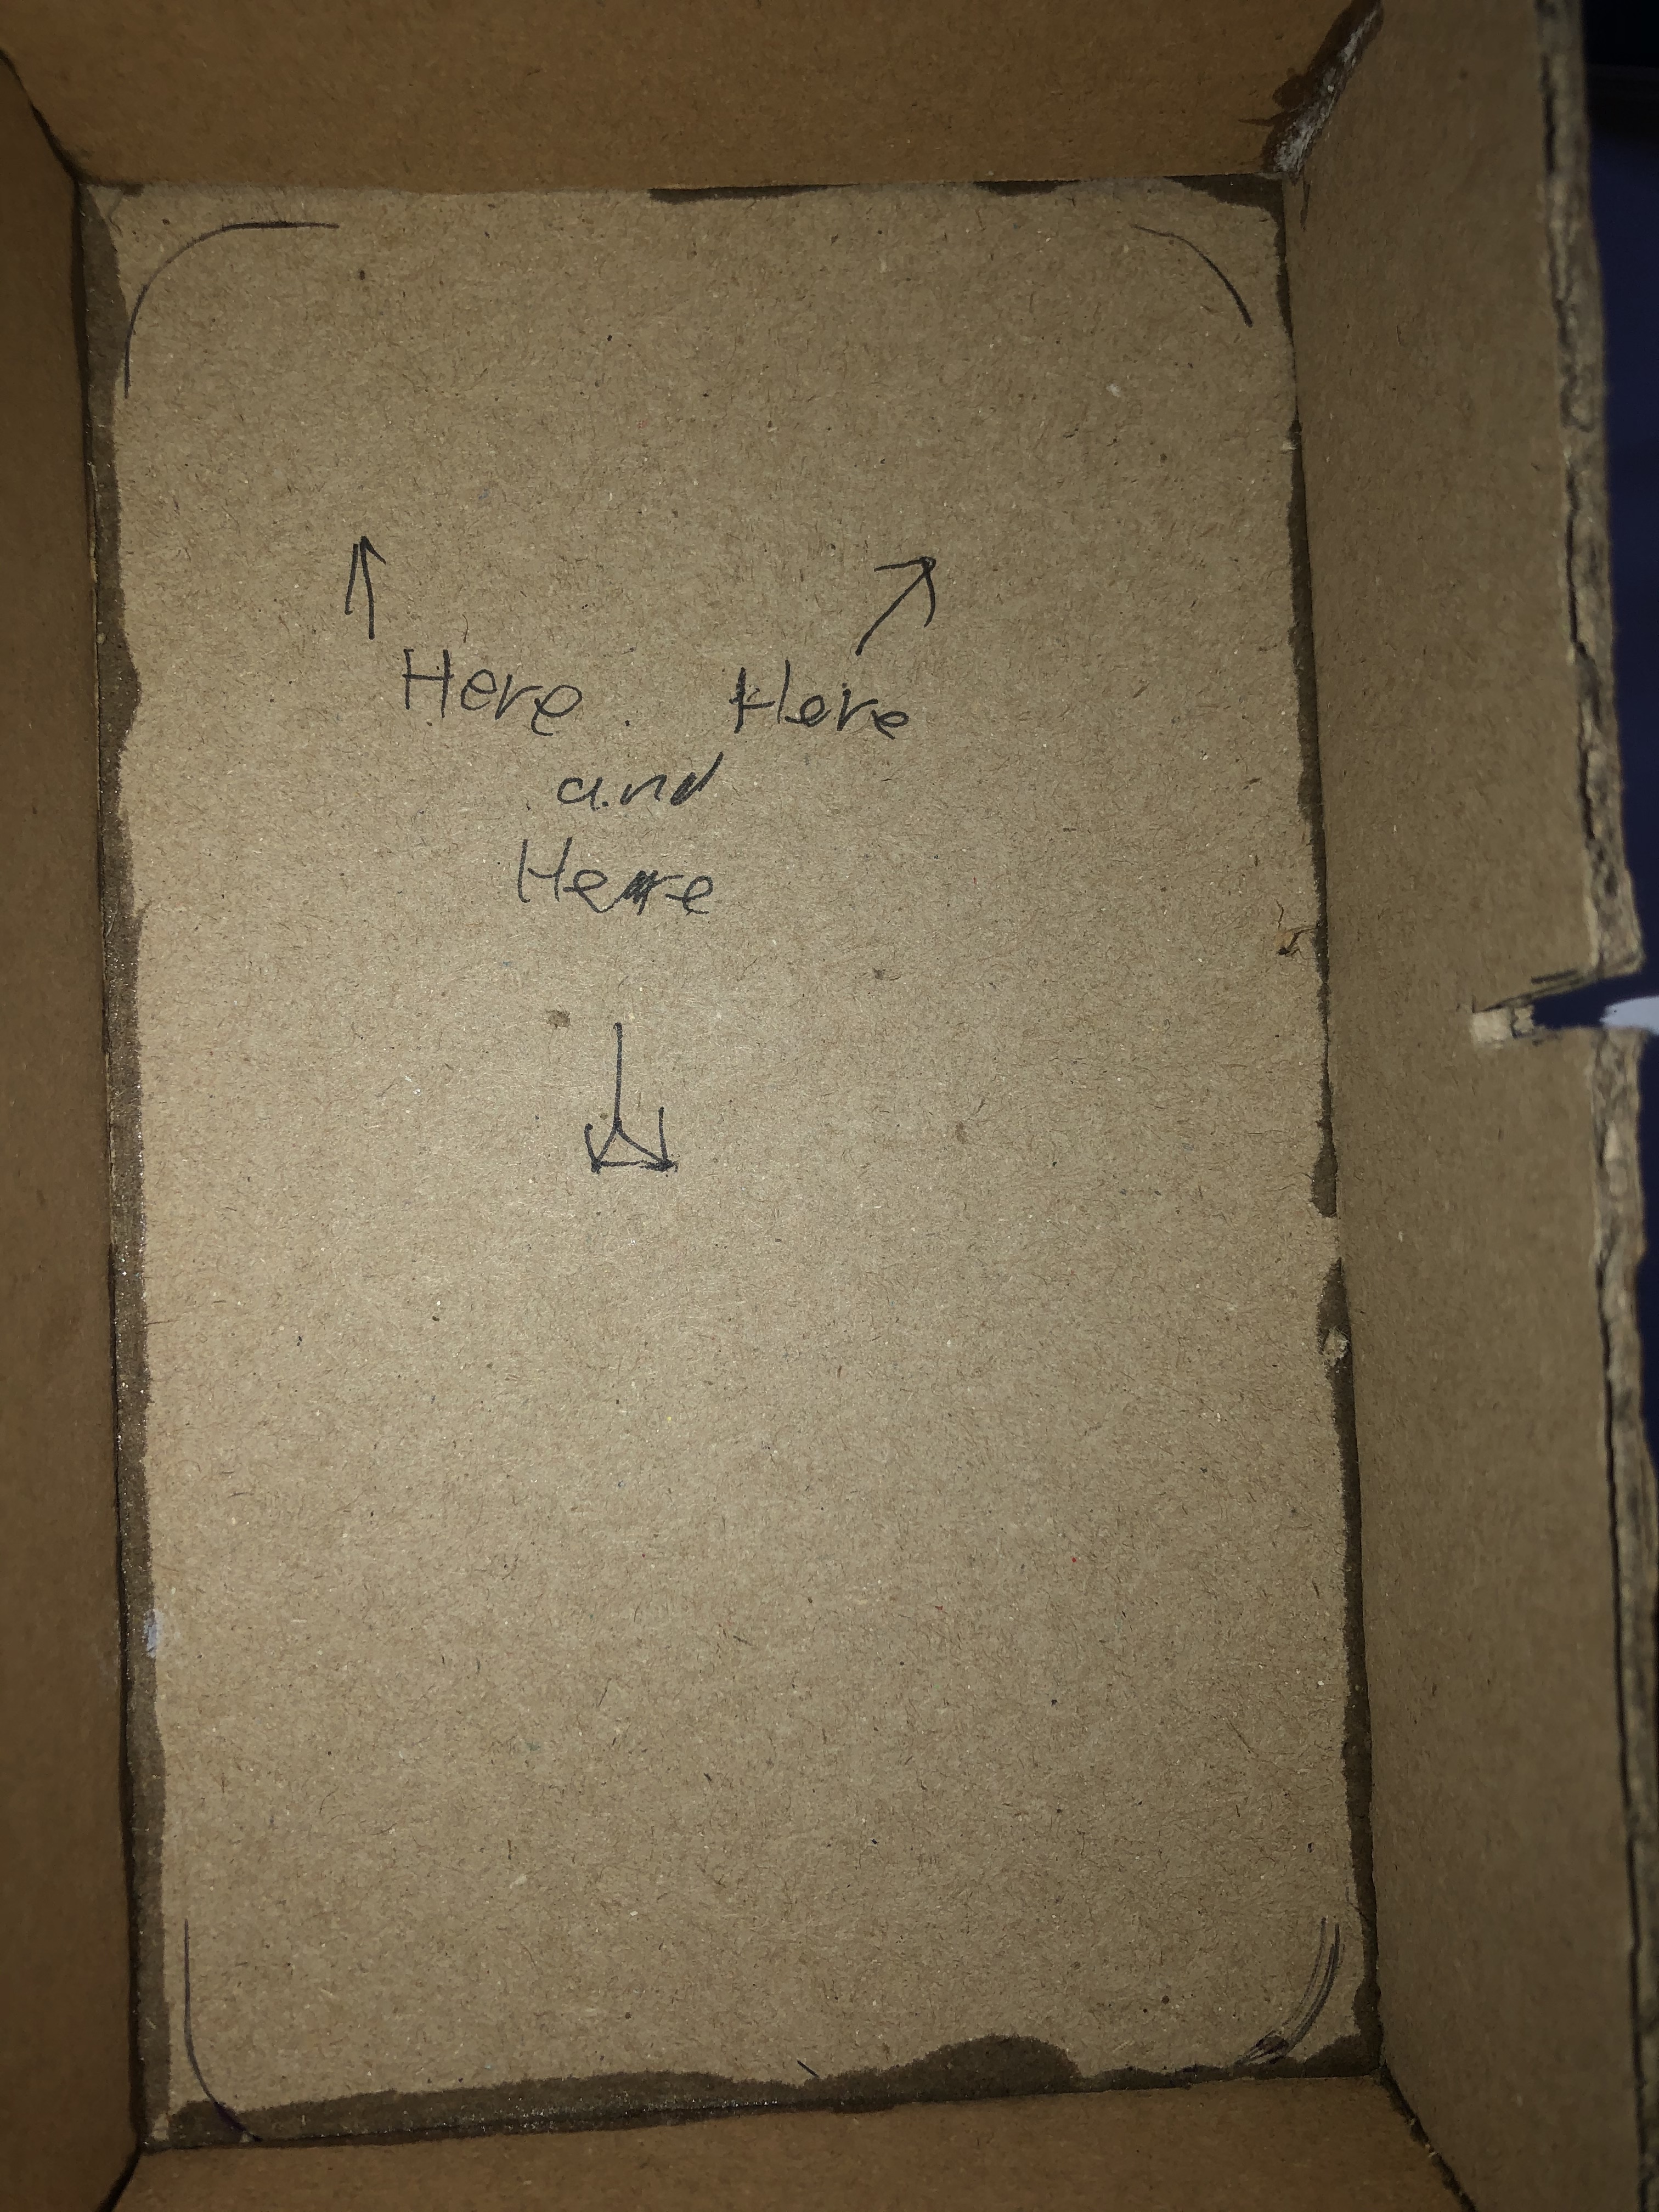 Here. Here
and
Here